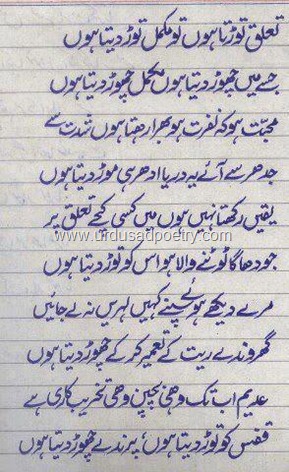 تعلق توڑتا ہوں تو مکمل توڑ دیتا ہوں
جسے میں چھوڑ دیتا ہوں مکمل چھوڑ دیتا ہوں
محبت ہو کہ نفرت ہو بھرا رھتا ہوں شدت سے
جدھر سے آئے یہ دریا ادھر ہی موڑ دیتا ہوں
یقیں رکھتا نہیں ہوں میں کسی کچے تعلق پر
www.urdusadpoetry.com
جو دھاگا ٹوٹنے والا ہو اس کو توڑ دیتا ہوں
مرے دیکھے ہوئے سپنے کہیں لہریں نہ لے جائیں
گھروندے ریت کے تعمیر کر کے چھوڑ دیتا ہوں
عدیم اب تک وھی بچپن وھی تخریب کاری ہے
قفس کو توڑ دیتا ہوں، پرندے چھوڑ دیتا ہوں